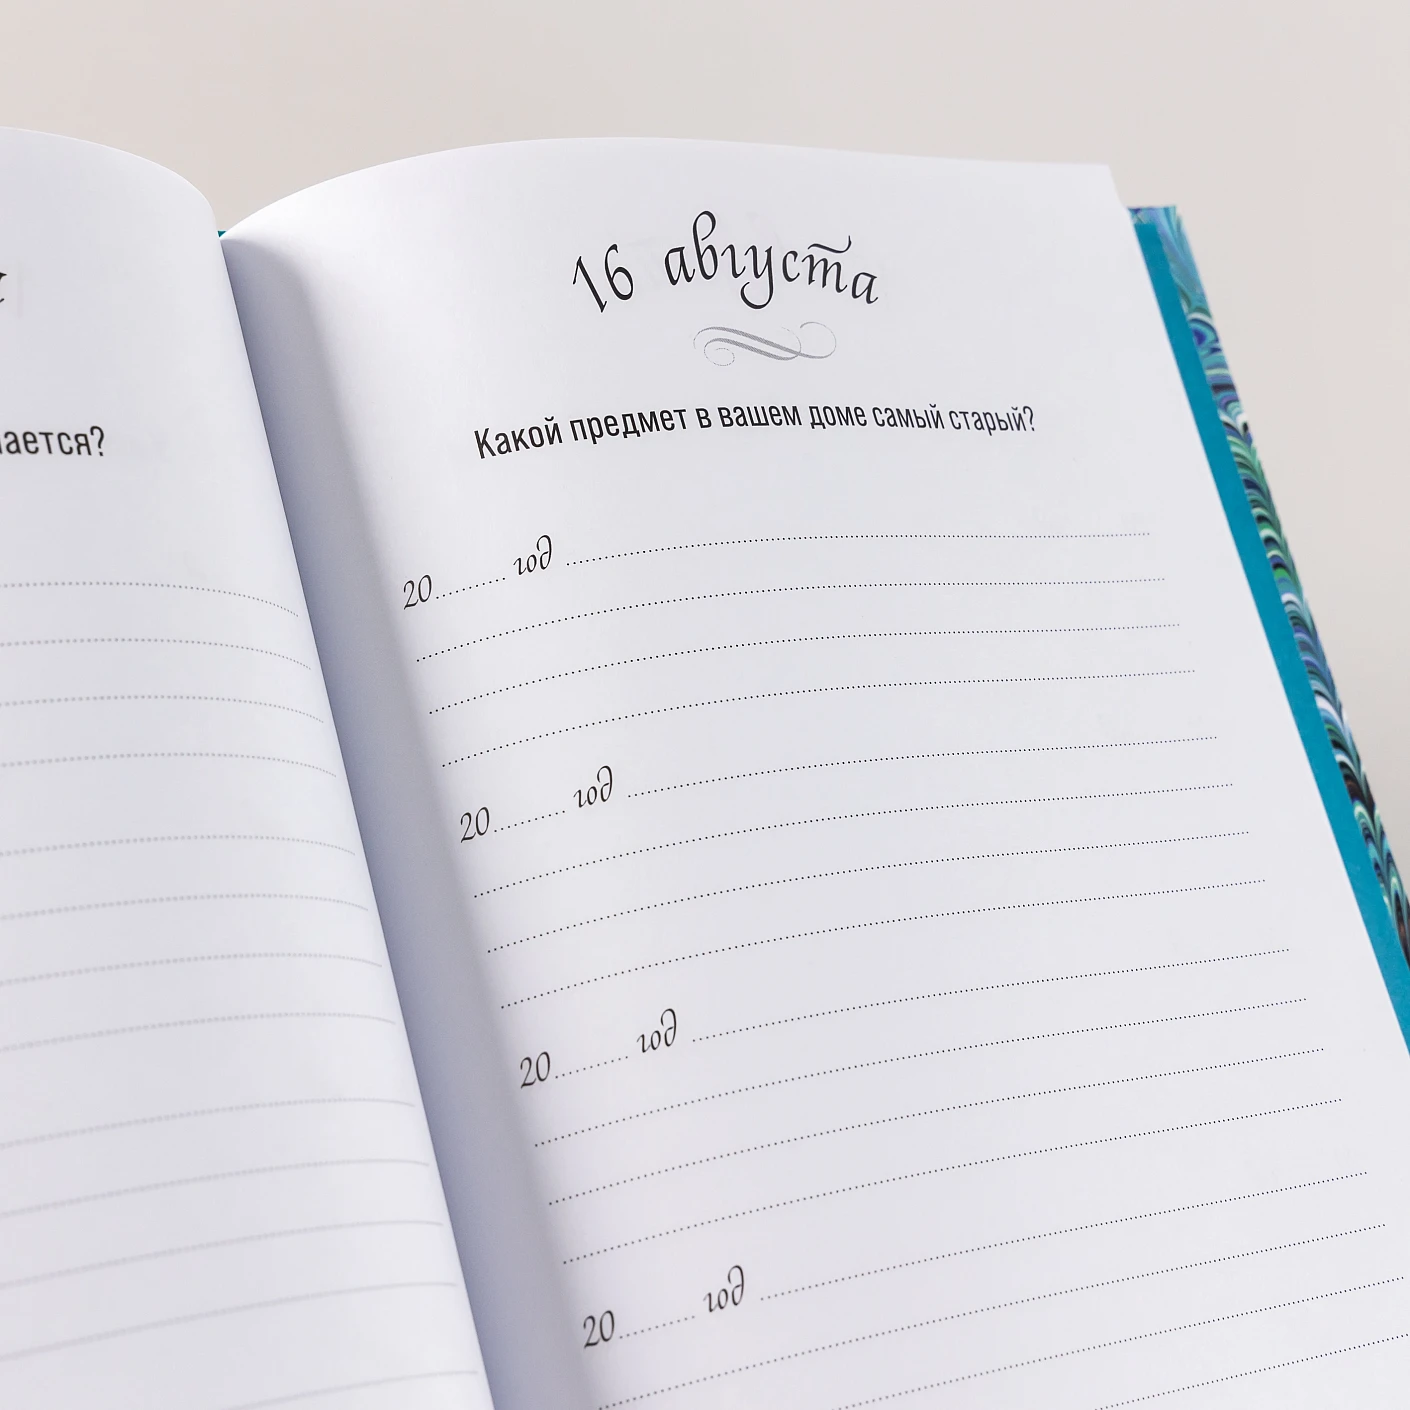 16 августа
Какой предмет в вашем доме самый старый?
20......... год
20......... год
20......... год
20......... год